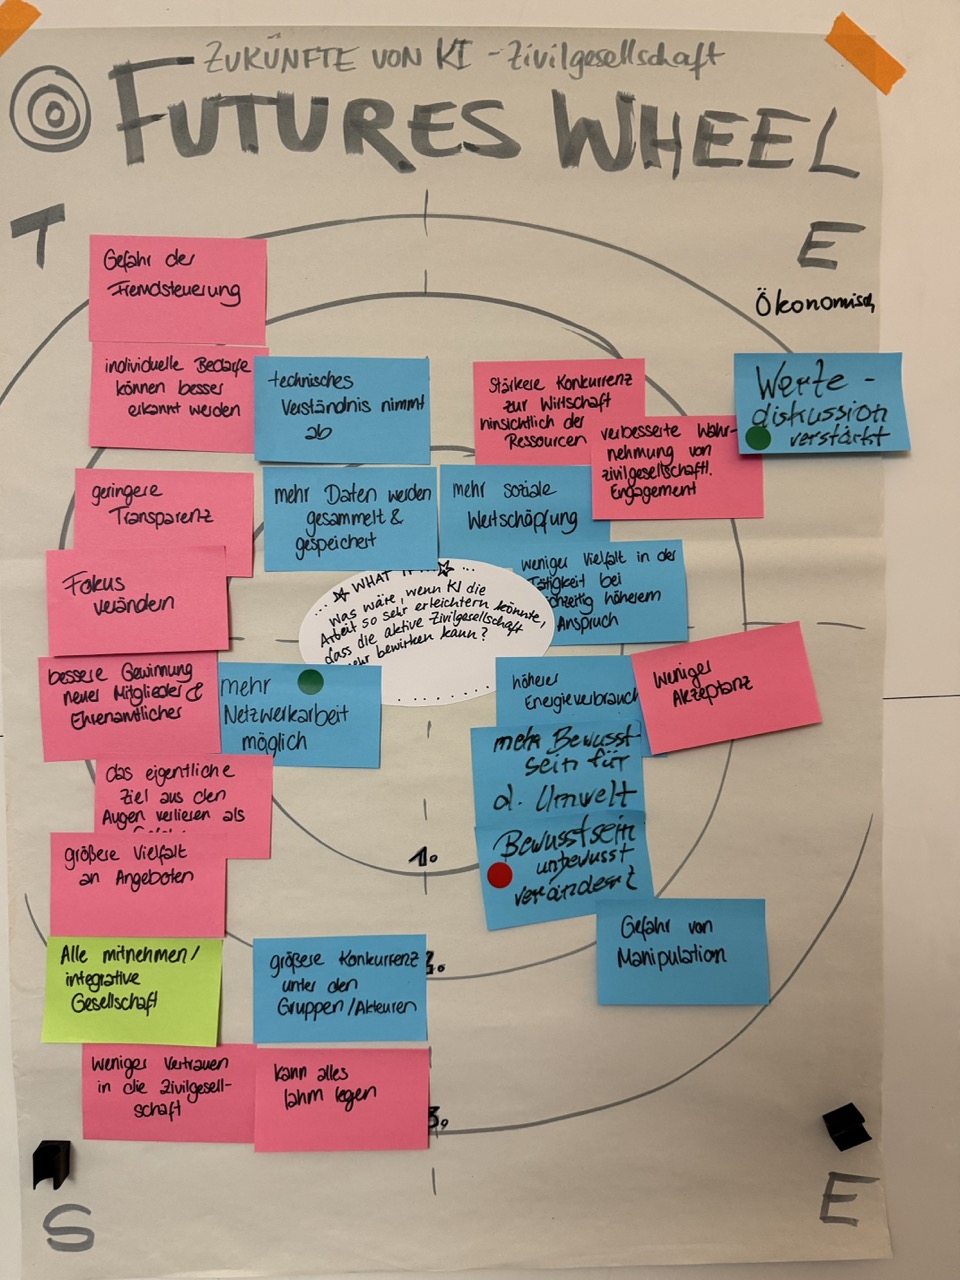 ZUKÜNFTE VON KI - Zivilgesellschaft
FUTURES WHEEL
T
E
Ökonomisch
Gefahr der
Fremdsteuerung
individuelle Bedarfe
können besser
erkannt werden
technisches
Verständnis nimmt
ab
Stärkere Konkurrenz
zur Wirtschaft
hinsichtlich der
Ressourcen
verbesserte Wahr-
nehmung von
zivilgesellschaftl.
Engagement
Werte-
diskussion
verstärkt
geringere
Transparenz
mehr Daten werden
gesammelt &
gespeichert
mehr soziale
Wertschöpfung
Fokus
verändern
... WHAT IF ...
Was wäre, wenn KI die
Arbeit so sehr erleichtern könnte,
dass die aktive Zivilgesellschaft
bewirken kann?
weniger Vielfalt in der
Tätigkeit bei
höherem
Anspruch
bessere Gewinnung
neuer Mitglieder &
Ehrenamtlicher
mehr
Netzwerkarbeit
möglich
höherer
Energieverbrauch
Weniger
Akzeptanz
das eigentliche
Ziel aus den
Augen verlieren als
mehr Bewusst
sein für
d. Umwelt
größere Vielfalt
an Angeboten
1.
Bewusstsein
unbewusst
verändert
Alle mitnehmen/
integrative
Gesellschaft
größere Konkurrenz
unter den
Gruppen/Akteuren
2.
Gefahr von
Manipulation
Weniger Vertrauen
in die Zivilgesell-
schaft
kann alles
lahm legen
3.
S
E